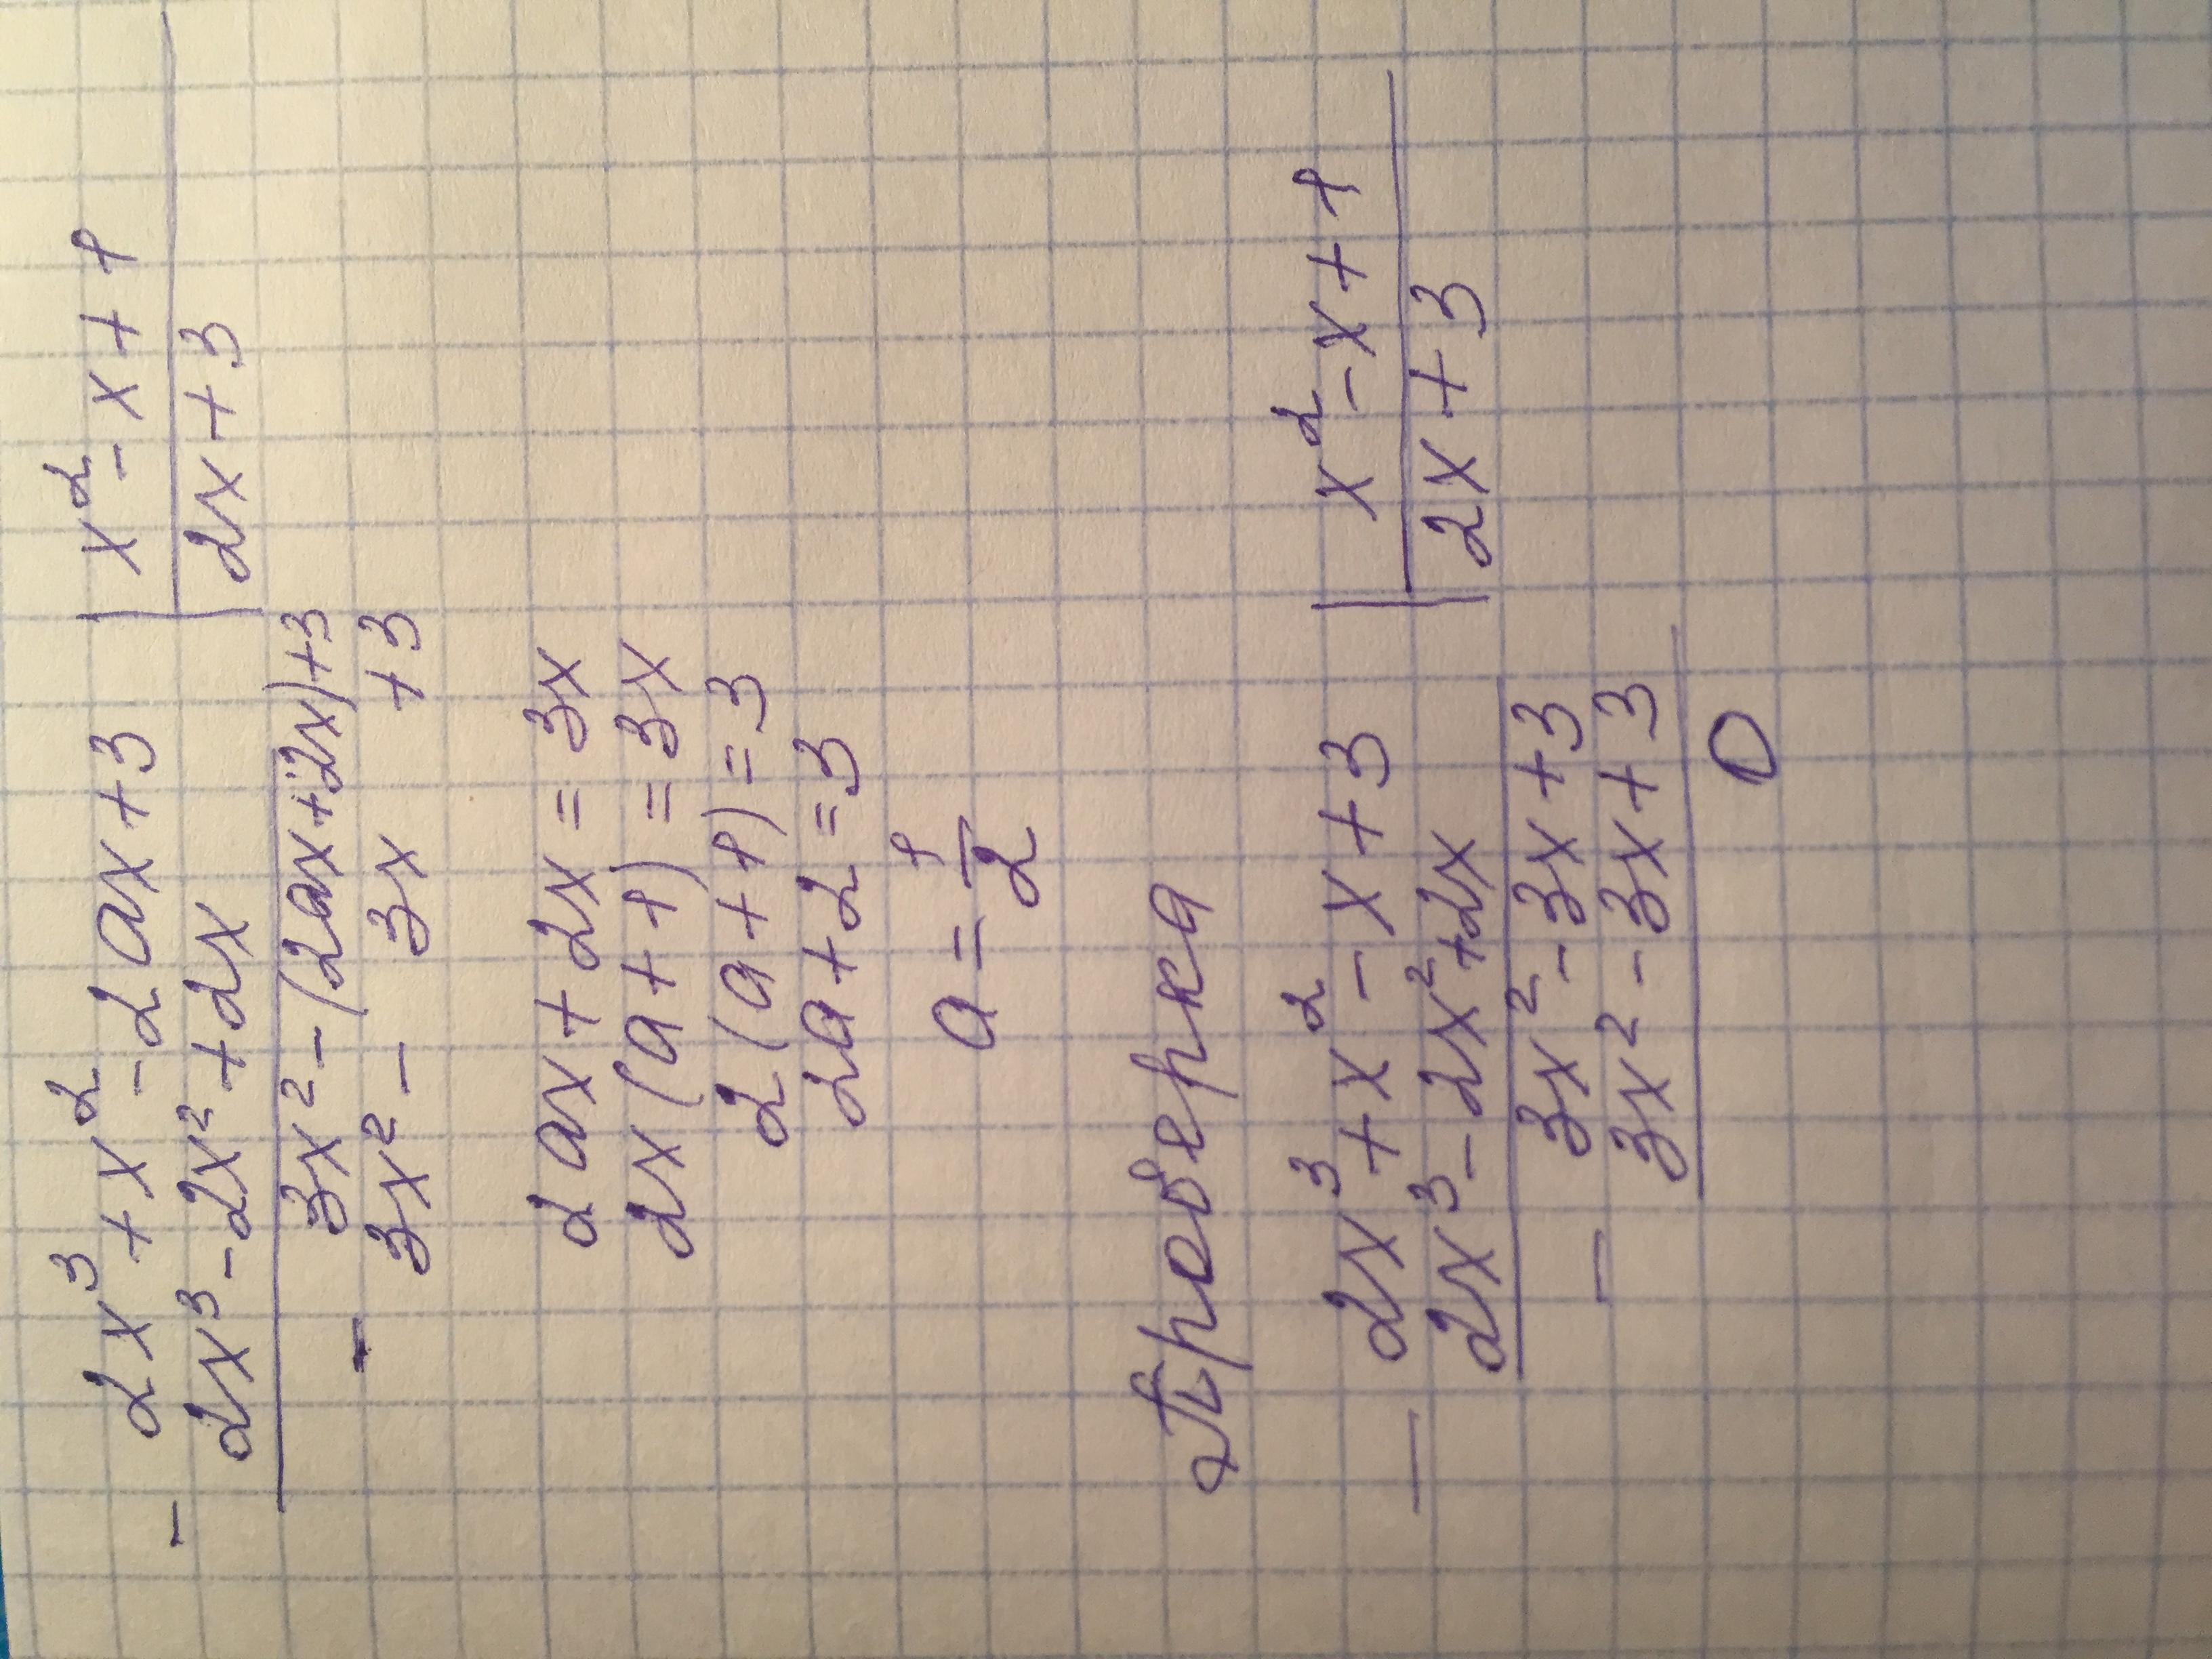 - 2x³ + x² - 2ax + 3 | x² - x + 1
2x³ - 2x² + 2x | 2x + 3
3x² - (2ax + 2x) + 3
- 3x² - 3x + 3
2ax + 2x = 3x
2x(a + 1) = 3x
2(a + 1) = 3
2a + 2 = 3
a = 1/2
Проверка
- 2x³ + x² - x + 3 | x² - x + 1
2x³ - 2x² + 2x | 2x + 3
3x² - 3x + 3
- 3x² - 3x + 3
0